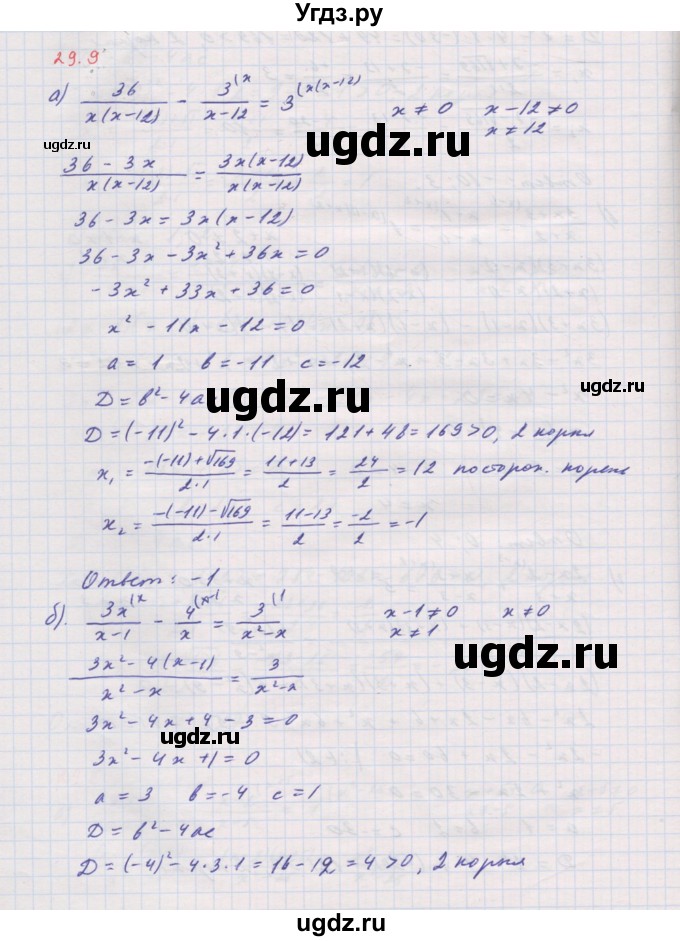 Угдз.ру
29.9
а) 36/(x(x-12)) - 3^(x/(x-12) = 3^(x(x-12) x ≠ 0 x-12 ≠ 0
x ≠ 12
ugdz.ru ugdz.ru
(36 - 3x)/(x(x-12)) = 3x(x-12)/(x(x-12))
36 - 3x = 3x(x-12)
36 - 3x - 3x² + 36x = 0
-3x² + 33x + 36 = 0
x² - 11x - 12 = 0
a = 1 b = -11 c = -12
ugdz.ru
D = b² - 4ac
D = (-11)² - 4·1·(-12) = 121 + 48 = 169 > 0, 2 корня
x₁ = (-(-11)+√169)/(2·1) = (11+13)/2 = 24/2 = 12 посторон. корень
x₂ = (-(-11)-√169)/(2·1) = (11-13)/2 = -2/2 = -1
Ответ: -1
б). 3x^(x/(x-1) - 4^(x-1/x = 3^(1/(x²-x) x-1 ≠ 0 x ≠ 0
x ≠ 1
ugdz.ru
(3x² - 4(x-1))/(x²-x) = 3/(x²-x)
3x² - 4x + 4 - 3 = 0
ugdz.ru
3x² - 4x + 1 = 0
a = 3 b = -4 c = 1
D = b² - 4ac
D = (-4)² - 4·3·1 = 16 - 12 = 4 > 0, 2 корня
ugdz.ru